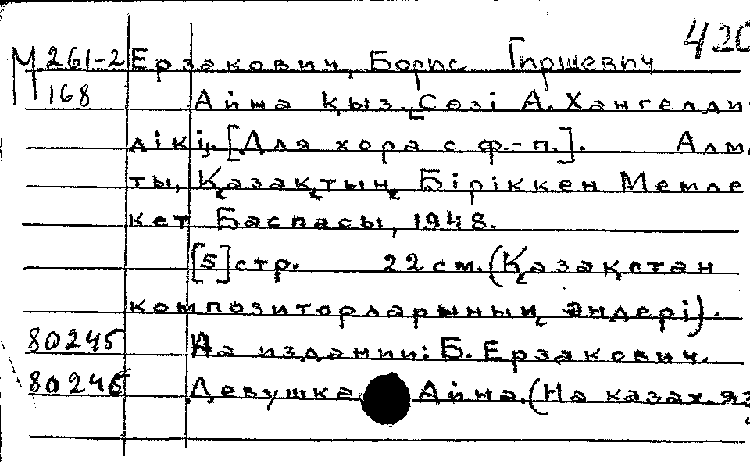 420
М 261-2 Ерзакович, Борис Гиршевич
168 Айна қыз. Сөзі А. Хангелди-
дікі. [Для хора с ф.-п.]. Алма-
ты, Қазақтың Біріккен Мемле
кет Баспасы, 1948.
[5] стр. 22 см. (Қазақстан
композиторларының әндері).
80245 На издании: Б. Ерзакович.
80246 Девушка Айна. (На казах. яз